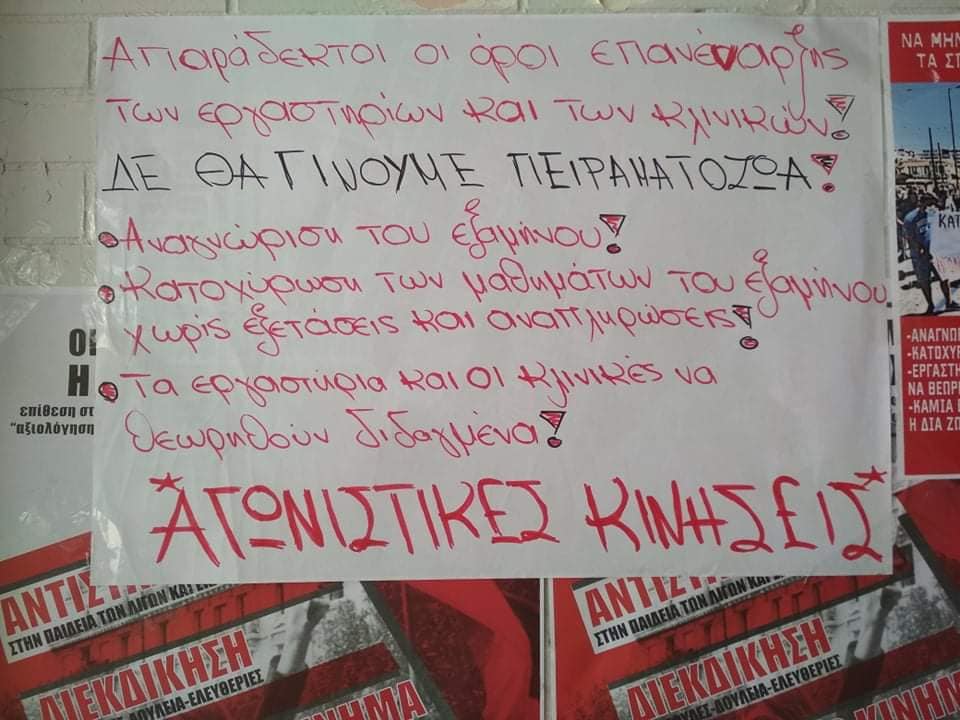 Απαράδεκτοι οι όροι επανέναρξης
των εργαστηρίων και των κλινικών!
ΔΕ ΘΑ ΓΙΝΟΥΜΕ ΠΕΙΡΑΜΑΤΟΖΩΑ!
• Αναγνώριση του εξαμήνου!
• Κατοχύρωση των μαθημάτων του εξαμήνου
χωρίς εξετάσεις και αναπληρώσεις!
• Τα εργαστήρια και οι κλινικές να
θεωρηθούν διδαγμένα!
*ΑΓΩΝΙΣΤΙΚΕΣ ΚΙΝΗΣΕΙΣ*
ΟΙ
Η
επίθεση στ
"αξιολόγηση
ΝΑ ΜΗΝ
ΤΑ ΣΠ
ΚΑΤ
-ΑΝΑΓΝΩ
-ΚΑΤΟΧΥΡ
-ΕΡΓΑΣΤΗ
ΝΑ ΘΕΩΡΗ
-ΚΑΜΙΑ
Η ΔΙΑ ΖΩ
ΑΝΤΙΣΤ
ΣΤΗΝ ΠΑΙΔΕΙΑ ΤΩΝ ΛΙΓΩΝ ΚΑΙ
ΔΙΕΚΔΙΚΗΣΗ
ΔΟΥΛΕΙΑ-ΕΛΕΥΘΕΡΙΕΣ
ΚΙΝΗΜΑ
ΑΝΤΙΣΤ
ΣΤΗΝ ΠΑΙΔΕΙΑ ΤΩΝ ΛΙΓΩΝ ΚΑΙ
ΔΙΕΚΔΙΚΗΣΗ
ΔΟΥΛΕΙΑ-ΕΛΕΥΘΕΡΙΕΣ
ΚΙΝΗΜ